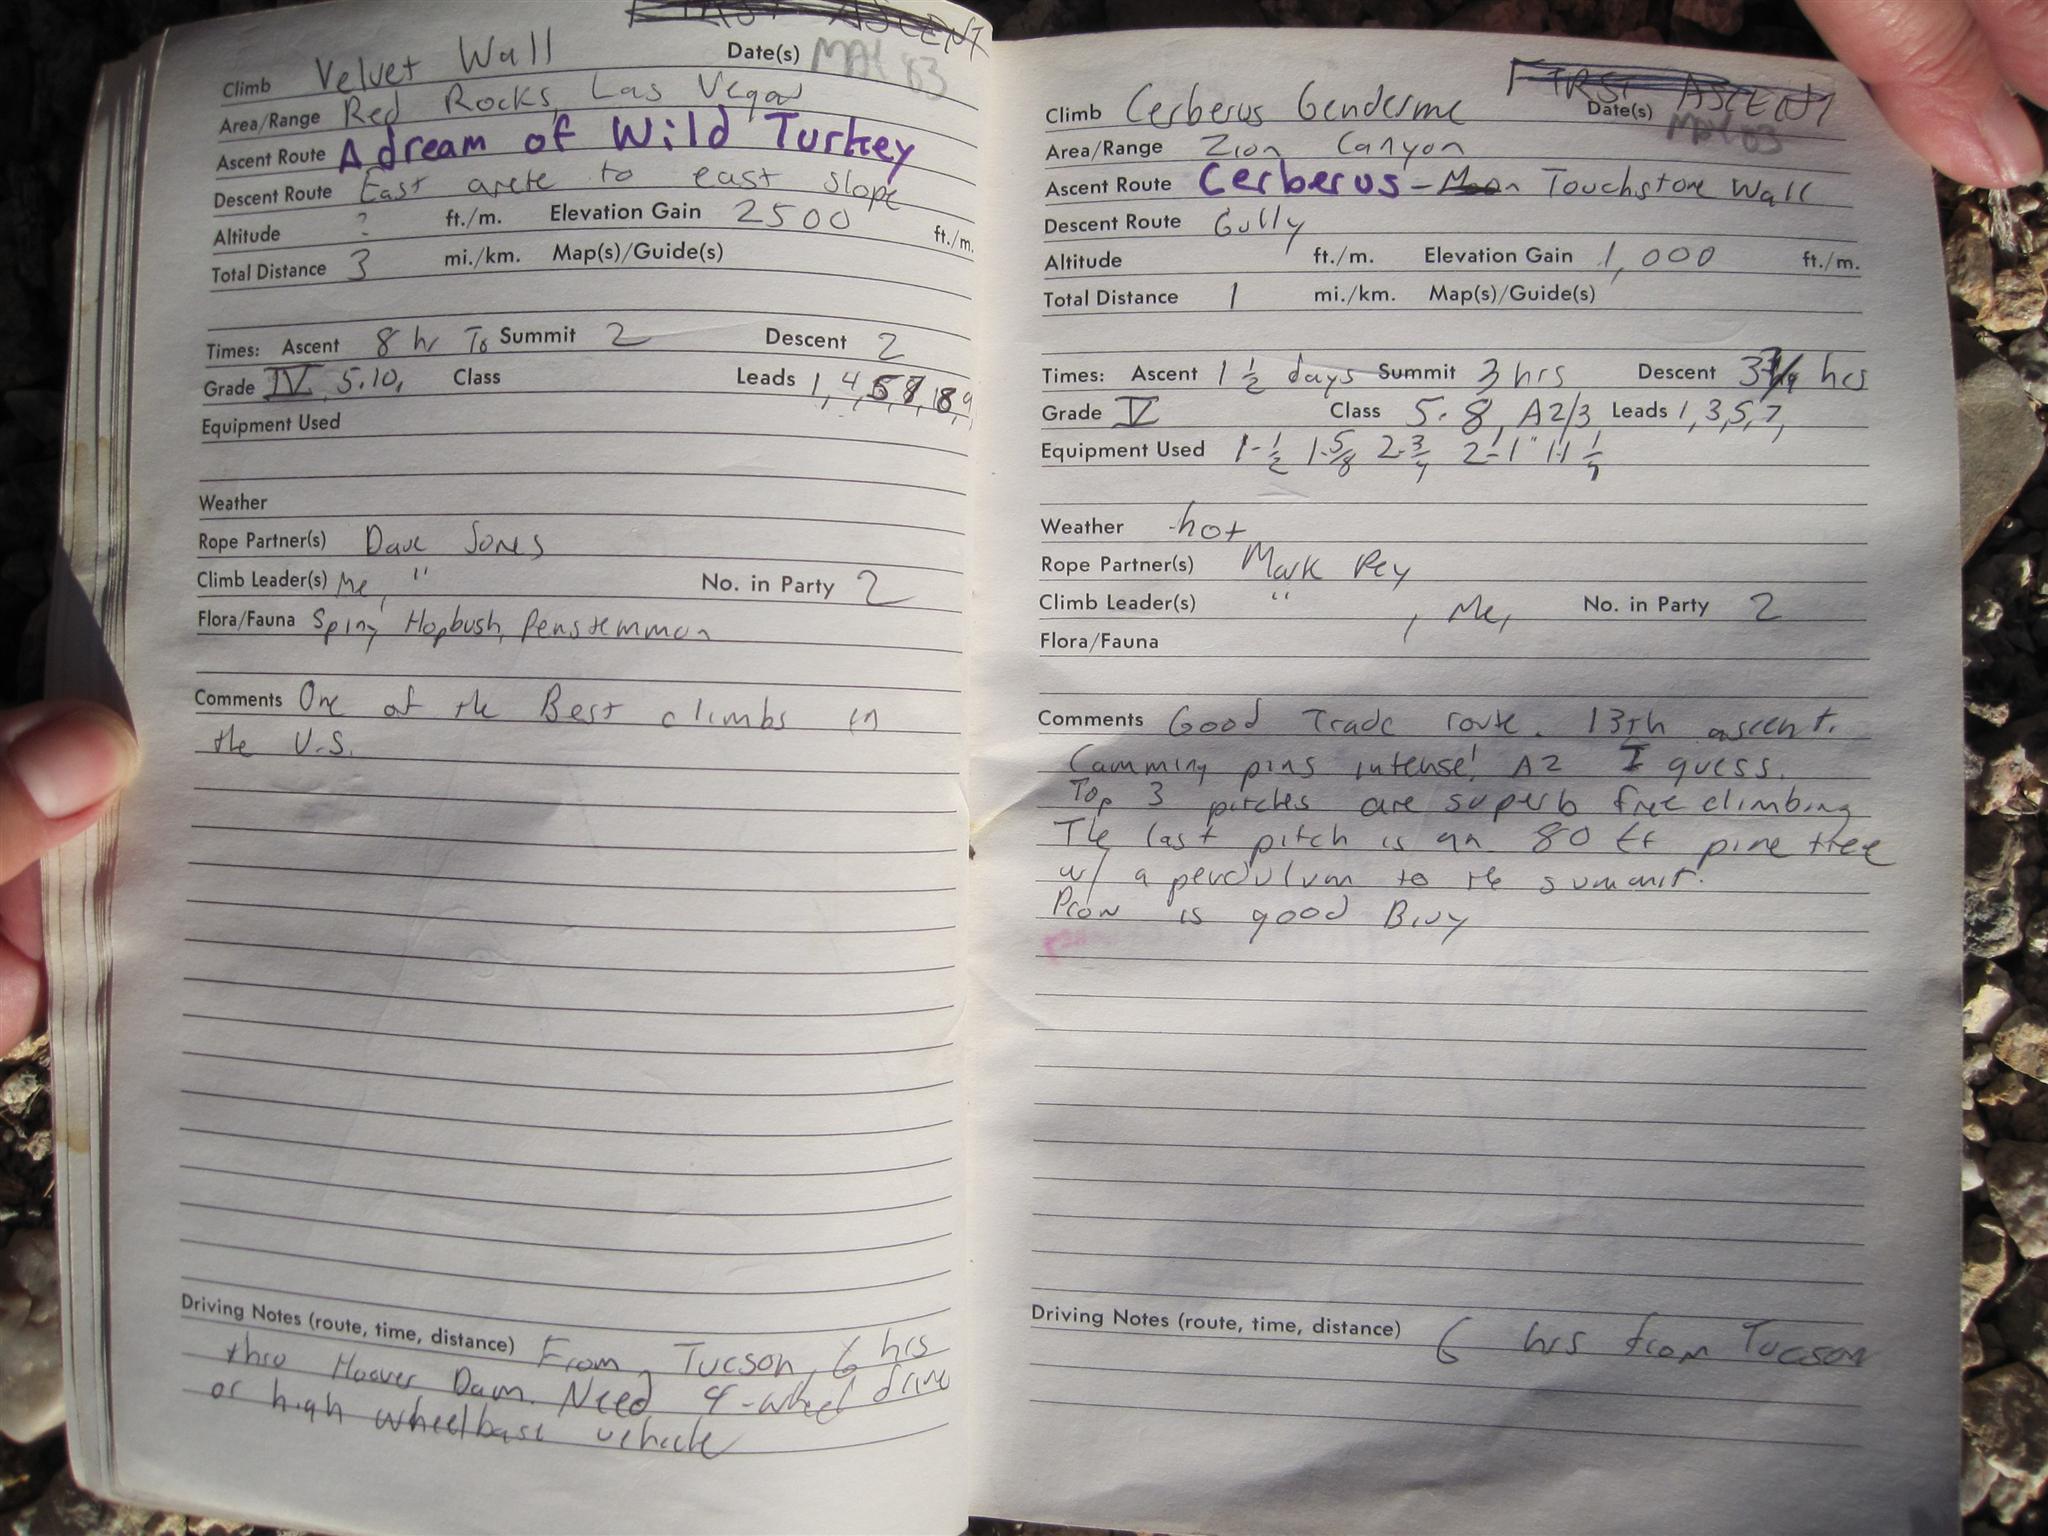 FIRST ASCENT
Climb Velvet Wall Date(s) MAY 83
Area/Range Red Rocks, Las Vegas
Ascent Route A dream of Wild Turkey
Descent Route East arete to east slope
Altitude ? ft./m. Elevation Gain 2500 ft./m.
Total Distance 3 mi./km. Map(s)/Guide(s)
Times: Ascent 8 hr To Summit 2 Descent 2
Grade IV, 5.10, Class Leads 1, 4, 5, 7, 8, 9,
Equipment Used
Weather
Rope Partner(s) Dave Jones
Climb Leader(s) Me, " No. in Party 2
Flora/Fauna Spiny Hopbush, Penstemmon
Comments One of the Best climbs in
the U.S.
Driving Notes (route, time, distance) From Tucson, 6 hrs
thro Hoover Dam. Need 4-wheel drive
or high wheelbase vehicle
FIRST ASCENT
Climb Cerberus Genderme Date(s) MAY 83
Area/Range Zion Canyon
Ascent Route Cerberus - Moon Touchstone Wall
Descent Route Gully
Altitude ft./m. Elevation Gain 1,000 ft./m.
Total Distance 1 mi./km. Map(s)/Guide(s)
Times: Ascent 1 1/2 days Summit 3 hrs Descent 3 hrs
Grade V Class 5.8, A2/3 Leads 1, 3, 5, 7,
Equipment Used 1-1/2 1-5/8 2-3/4 2-1" 1-1 1/4
Weather hot
Rope Partner(s) Mark Pey
Climb Leader(s) " , Me, No. in Party 2
Flora/Fauna
Comments Good Trade route. 13th ascent.
Camming pins intense! A2 I guess.
Top 3 pitches are superb free climbing
The last pitch is an 80 ft pine tree
w/ a pendulum to the summit.
Prow is good Bivy
Driving Notes (route, time, distance) 6 hrs from Tucson